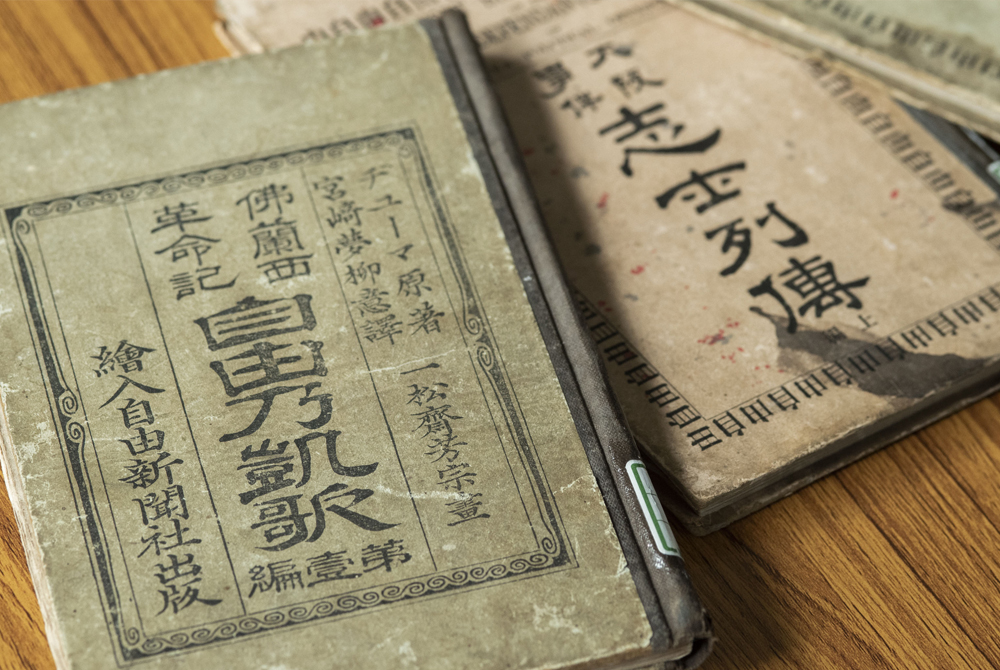 ヂューマ原著
宮崎夢柳意譯
一松齋芳宗畫
佛蘭西
革命記
自由乃凱歌
第壹編
繪入自由新聞社出版
大阪
事件
志士列傳
上
自由自由自由自由
自由自由自由自由